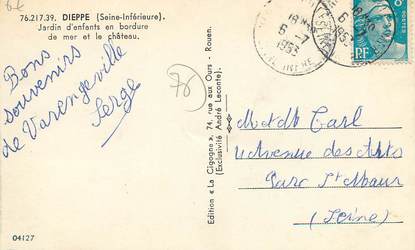 76.217.39. DIEPPE (Seine-Inférieure).
Jardin d'enfants en bordure
de mer et le château.
Bons
souvenirs
de Varengeville
Serge
04127
Edition « La Cigogne », 74, rue aux Ours - Rouen.
(Exclusivité André Leconte).
18H
6-7
1953
6
1953
POSTES
RF
M et Mme Carl
4 Avenue des Arts
Parc St Maur
(Seine)